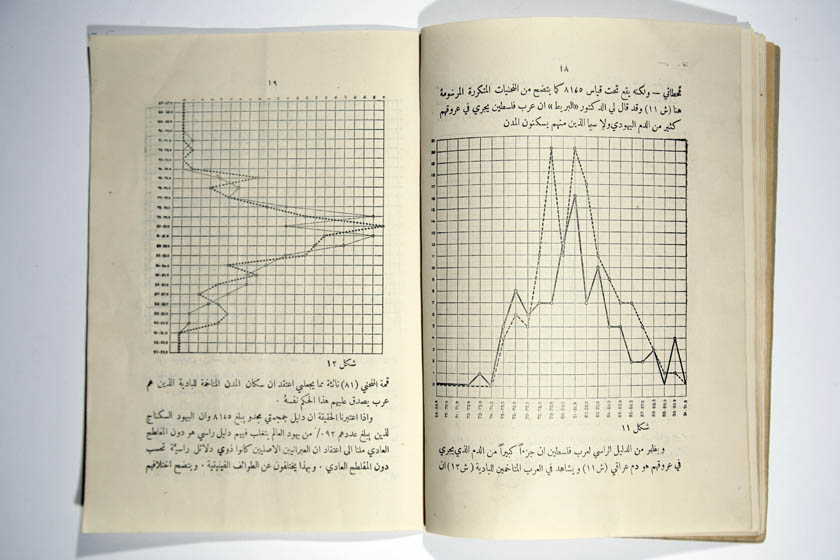 ١٨
قحطاني — ولكنه يقع تحت قياس ٨١٧٥ كما يتضح من المنحنيات المتكررة المرسومة
هنا (ش ١١) وقد قال لي الدكتور «البريط» ان عرب فلسطين يجري في عروقهم
كثير من الدم اليهودي ولا سيما الذين منهم يسكنون المدن
شكل ١١
ويظهر من الدليل الراسي لعرب فلسطين ان جزءاً كبيراً من الدم الذي يجري
في عروقهم هو دم عراقي (ش ١١) ويشاهد في العرب المتاخمين للبادية (ش ١٢) ان
١٩
شكل ١٢
قمة المنحني (٨١) ناتئة مما يجعلني اعتقد ان سكان المدن المتاخمة للبادية الذين هم
عرب يصدق عليهم هذا الحكم نفسه .
واذا اعتبرنا الحقيقة ان دليل جمجمتي مجدو يبلغ ٨١٤٥ وان اليهود السكناج
الذين يبلغ عددهم ٩٢٪ من يهود العالم يتغلب فيهم دليل راسي هو دون المقاطع
العادي ملنا الى اعتقاد ان العبرانيين الاصليين كانوا ذوي دلائل راسية تحسب
دون المقاطع العادي . وبهذا يختلفون عن الطوائف الفينيقية . ويتضح اختلافهم